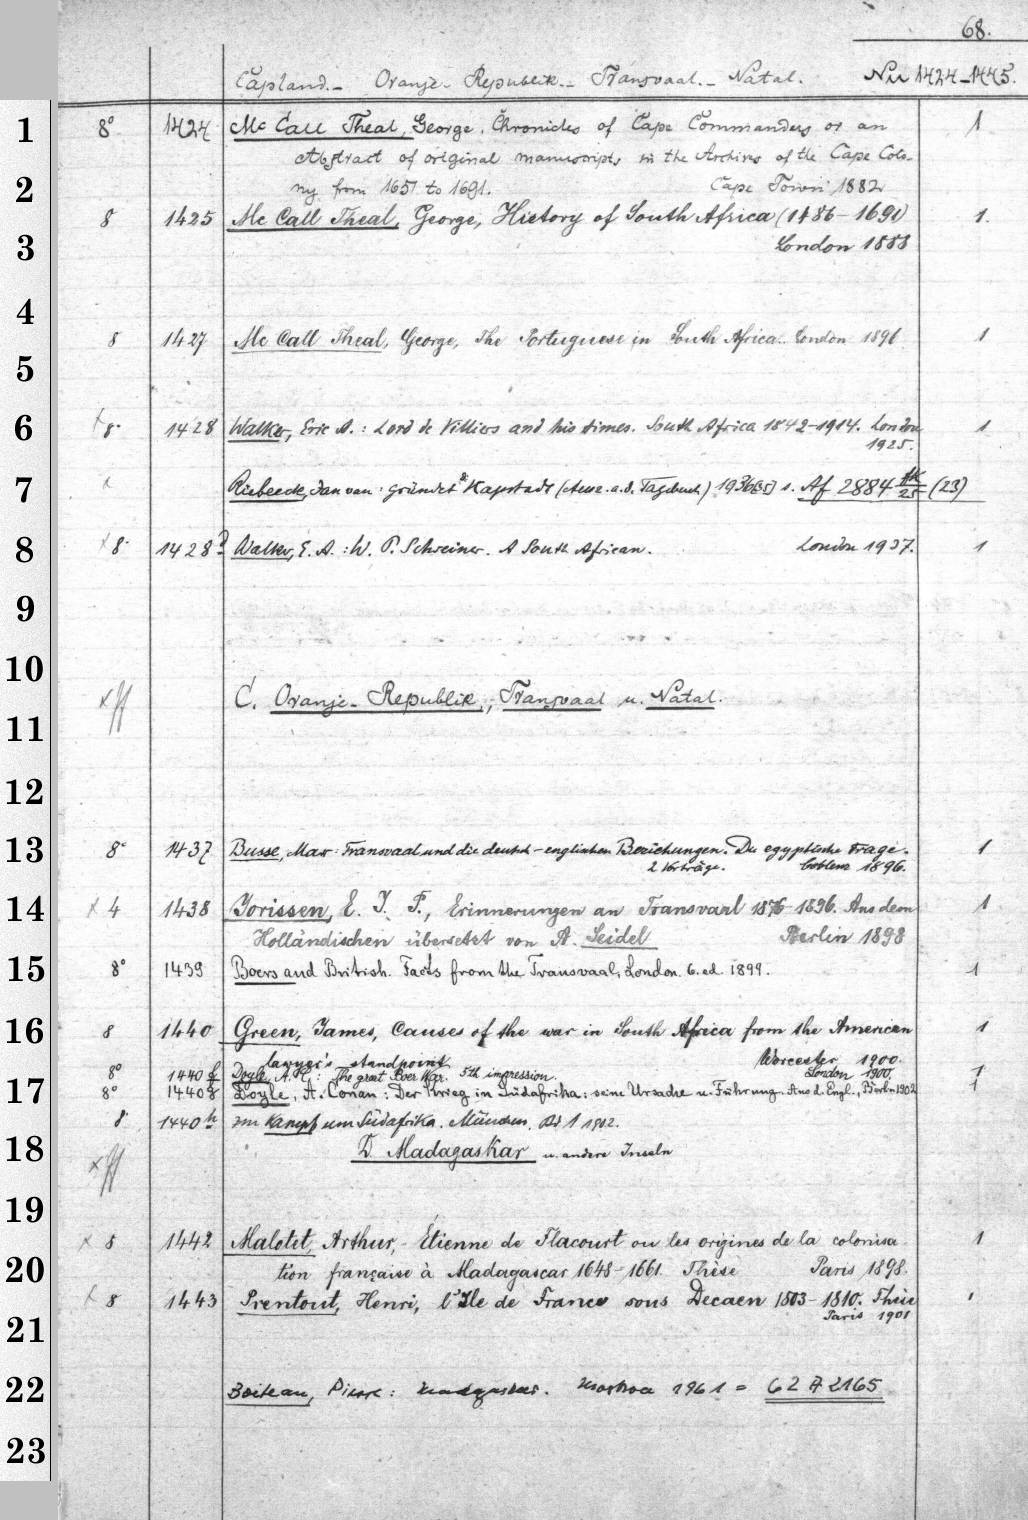 68.
Capland. - Oranje- Republik. - Transvaal. - Natal. Nu 1424-1445.
1 8° 1424 Mc Call Theal, George. Chronicles of Cape Commanders or an 1
Abstract of original manuscripts in the Archives of the Cape Colo-
2 ny from 1651 to 1691. Cape Town 1882
8 1425 Mc Call Theal, George, History of South Africa (1486-1691) 1.
3 London 1888
4
8 1427 Mc Call Theal, George, The Portuguese in South Africa. London 1896 1
5
6 x 8° 1428 Walker, Eric A.: Lord de Villiers and his times. South Africa 1842-1914. London 1
1925.
7 x Riebeeck, Jan van: gründet Kapstadt (Ausz. a. d. Tagebuch) 1936 s. Af 2884 (23)
25
8 x 8° 1428 a Walker, E. A.: W. P. Schreiner. A South African. London 1937. 1
9
10
x C. Oranje- Republik, Transvaal u. Natal.
11
12
13 8° 1437 Busse, Max: Transvaal und die deutsch-englischen Beziehungen. Die egyptische Frage. 1
2 Vorträge. Coblenz 1896.
14 x 4 1438 Jorissen, E. J. P., Erinnerungen an Transvaal 1876-1896. Aus dem 1
Holländischen übersetzt von A. Seidel Berlin 1898
15 8° 1439 Boers and British. Facts from the Transvaal, London. 6. ed. 1899. 1
16 8 1440 Green, James, Causes of the war in South Africa from the American 1
lawyer's standpoint Worcester 1900.
8° 1440 f Doyle, A. C.: The great Boer War. 5th impression. London 1900. 1
17 8° 1440 g Doyle, A. Conan: Der Krieg in Südafrika: seine Ursache u. Führung. Aus d. Engl., Berlin 1902 1
8 1440 h Im Kampf um Südafrika. München, Bd 1 1902.
18 x D. Madagaskar u. andere Inseln
19
x 8 1442 Malotet, Arthur, - Étienne de Flacourt ou les origines de la colonisa 1
20 tion française à Madagascar 1648-1661. Thèse Paris 1898.
x 8 1443 Prentout, Henri, l'Ile de France sous Decaen 1803-1810. Thèse 1
21 Paris 1901
22 Boiteau, Pierre: Madagaskar. Moskva 1961 = 62 A 2165
23